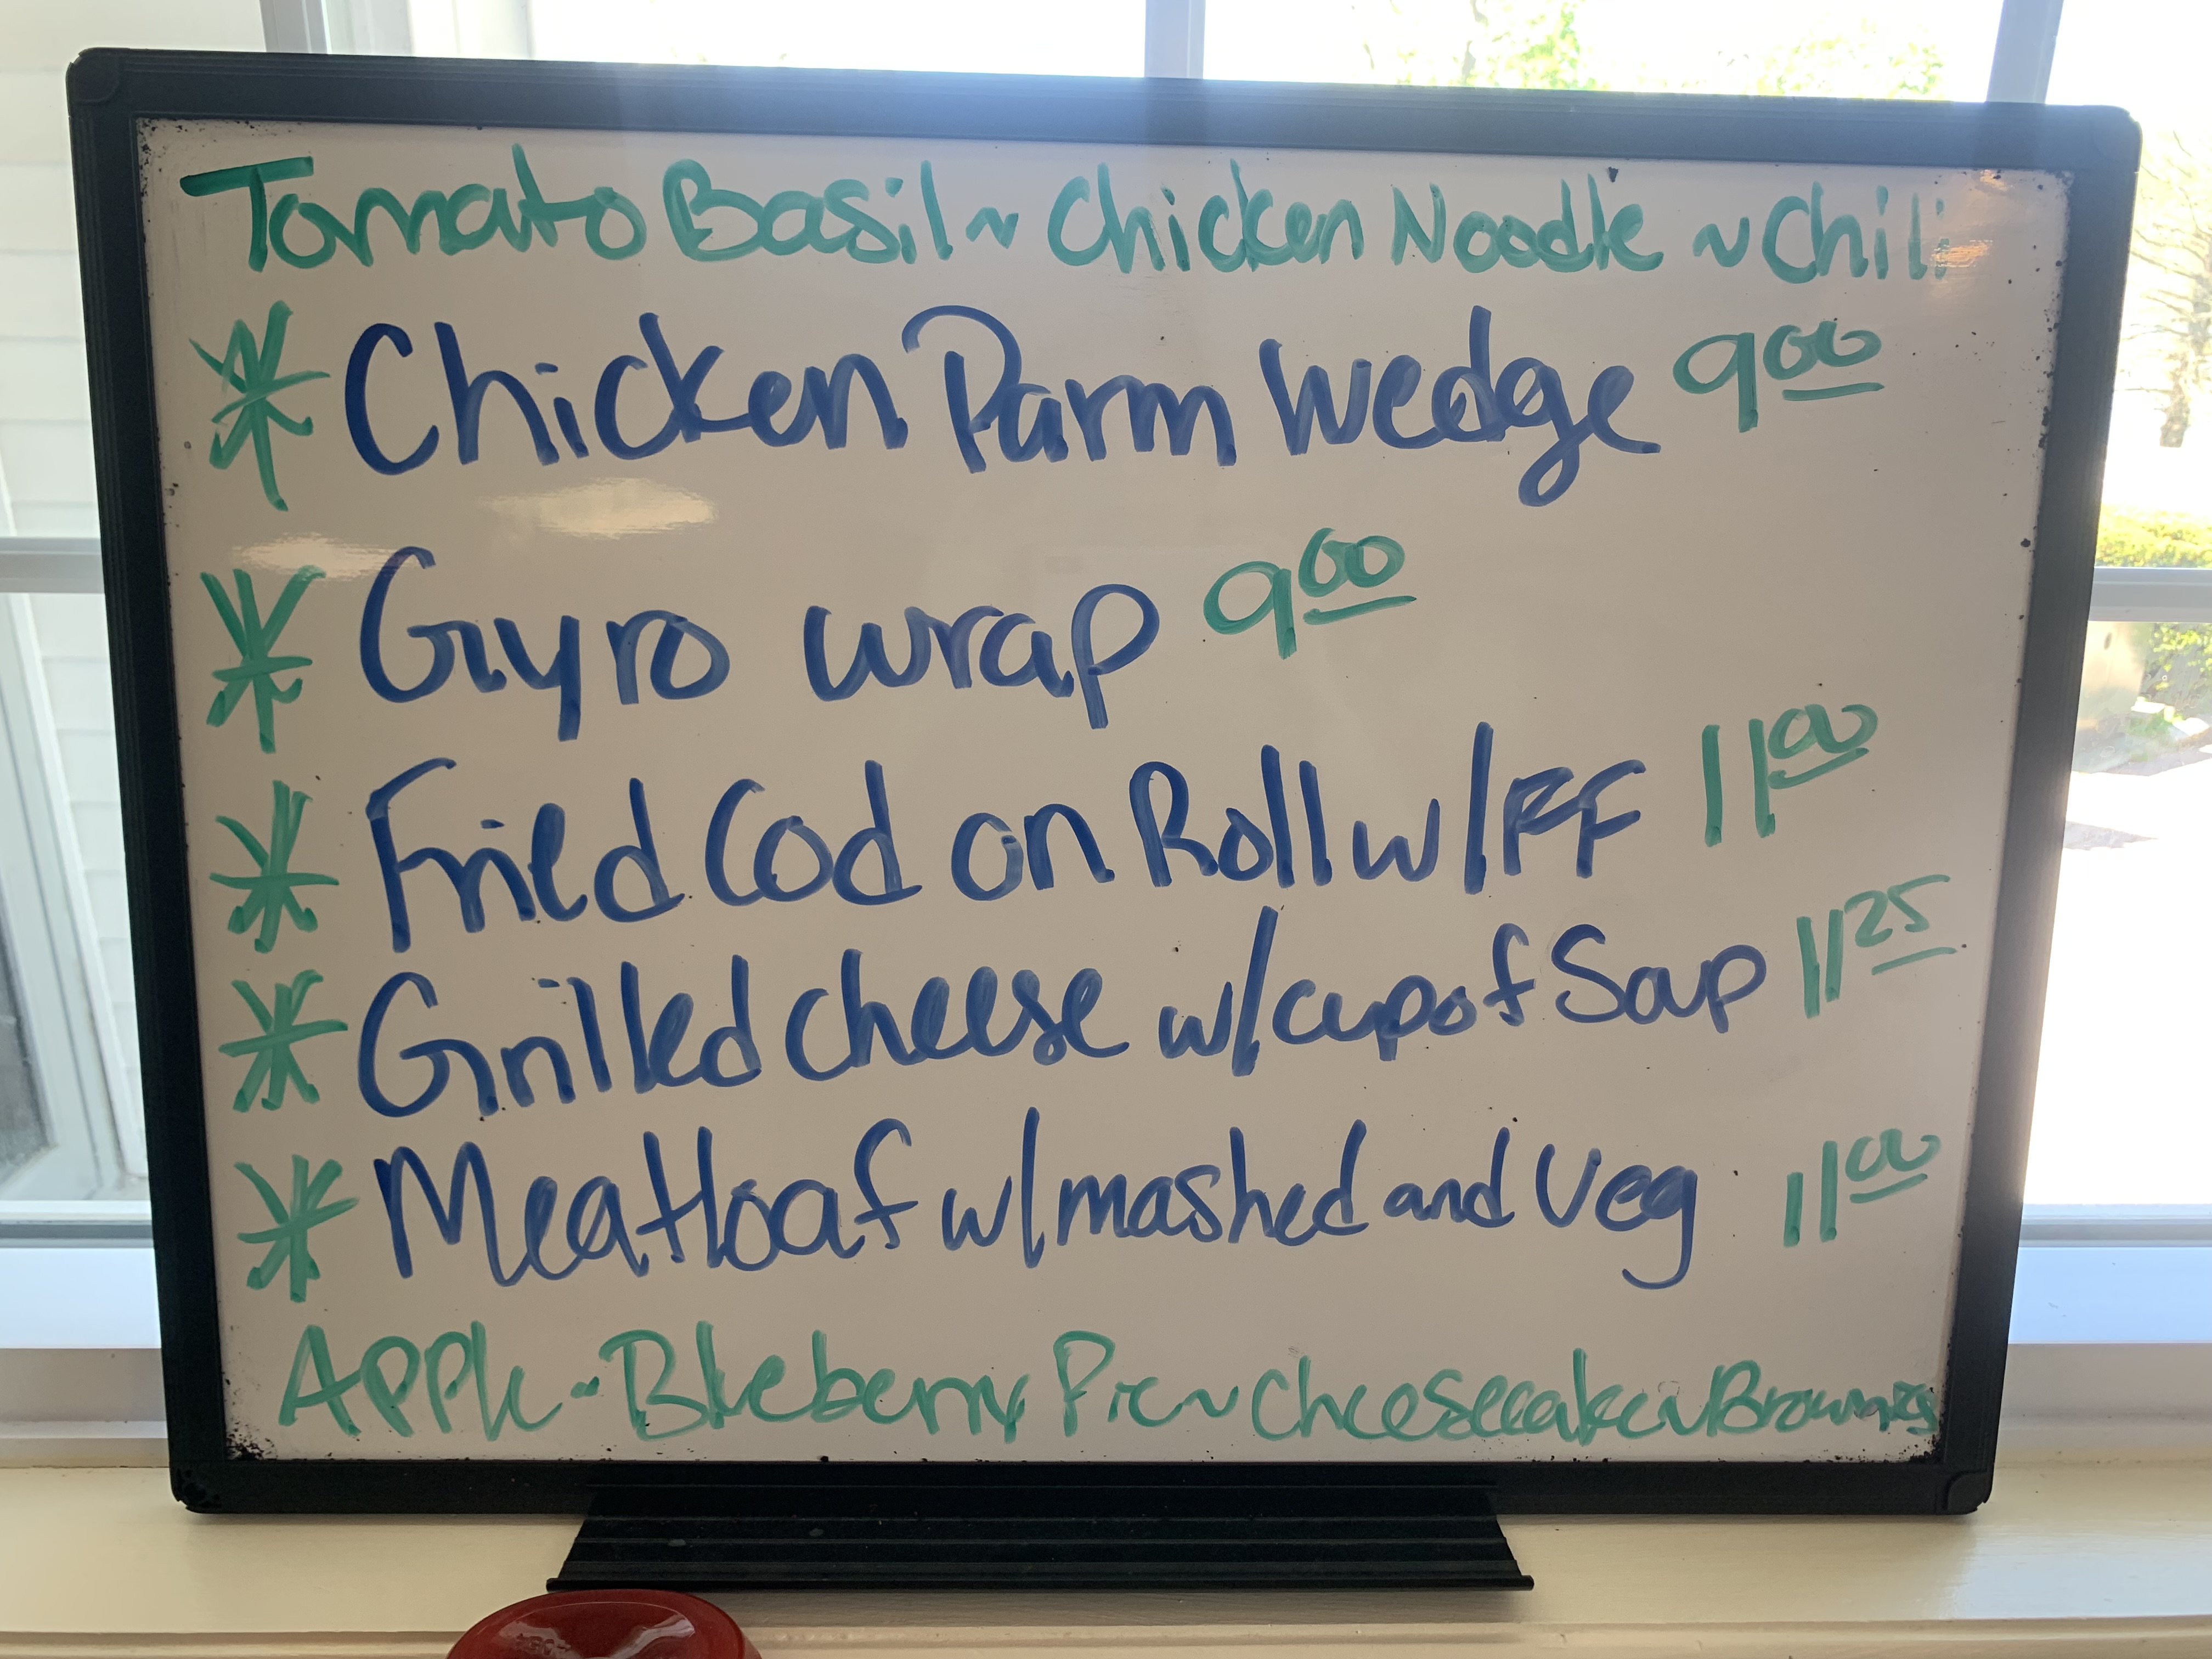 Tomato Basil ~ Chicken Noodle ~ Chili
* Chicken Parm Wedge 9 00
* Gyro wrap 9 00
* Fried Cod on Roll w/FF 11 00
* Grilled cheese w/cup of Soup 11 25
* Meatloaf w/mashed and Veg 11 00
Apple ~ Blueberry Pie ~ Cheesecake ~ Brownies